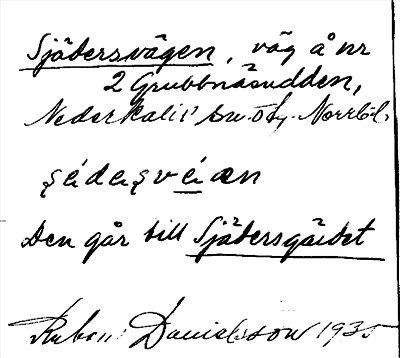 Sjädersvägen, väg å nr
2 Grubbnäsudden,
Nederkalix sn. o. hg. Norrb. l.
ʂédeʂvéæn
Den går till Sjädersgärdet
Ruben Danielsson 1935